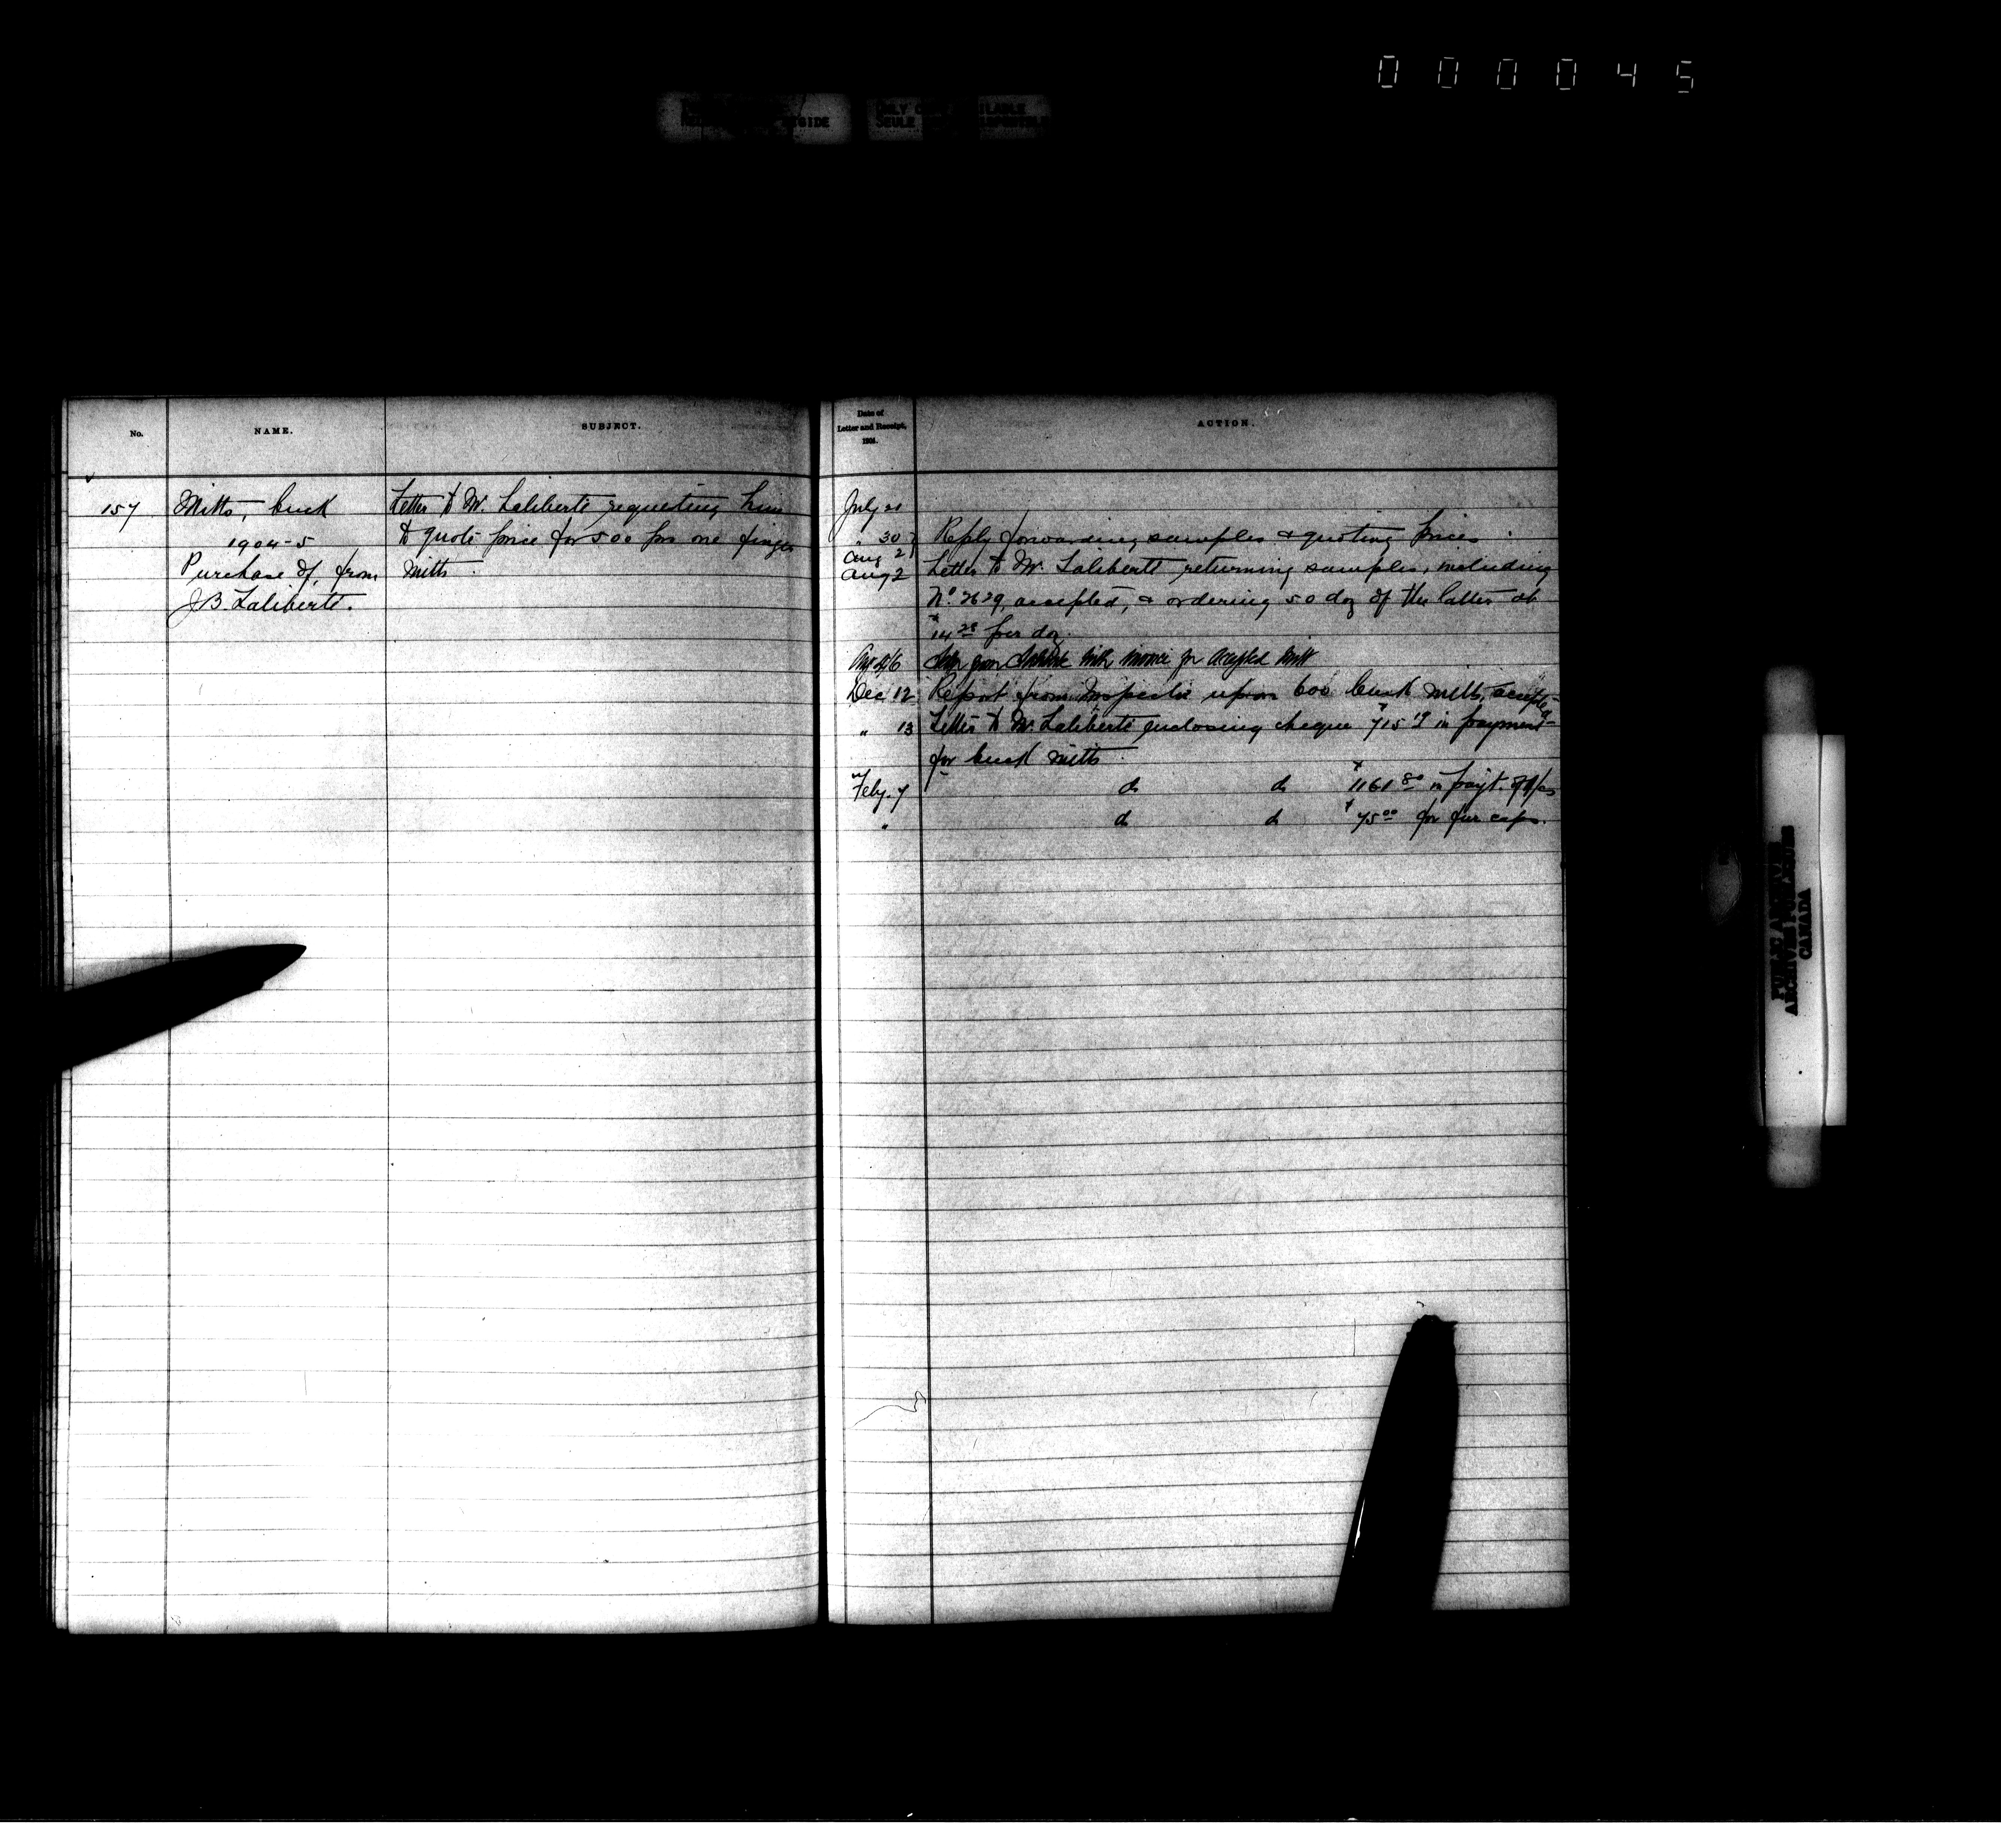 000045
ONLY COPY AVAILABLE
SEULE
No.
NAME.
SUBJECT.
157
Mitts, buck
1904-5
Purchase of, from
J.B. Laliberte.
Letter to Mr. Laliberte requesting him
to quote price for 500 prs one finger
mitts.
Date of
Letter and Receipt,
1904.
ACTION.
July 21
" 30
Aug 2
Reply forwarding samples & quoting prices.
Aug 2
Letter to Mr. Laliberte returning samples, including
No. 2629, accepted, & ordering 50 doz of the latter at
per doz.
with invoice for accepted mitt
Dec 12
Report from Inspector upon 600 buck mitts, accepted
" 13
Letter to Mr. Laliberte enclosing cheque $715.19 in payment
for buck mitts.
Feby. 7
do do $1161.80 in payt. of
" do do $75.00 for fur caps.
PUBLIC ARCHIVES
ARCHIVES PUBLIQUES
CANADA